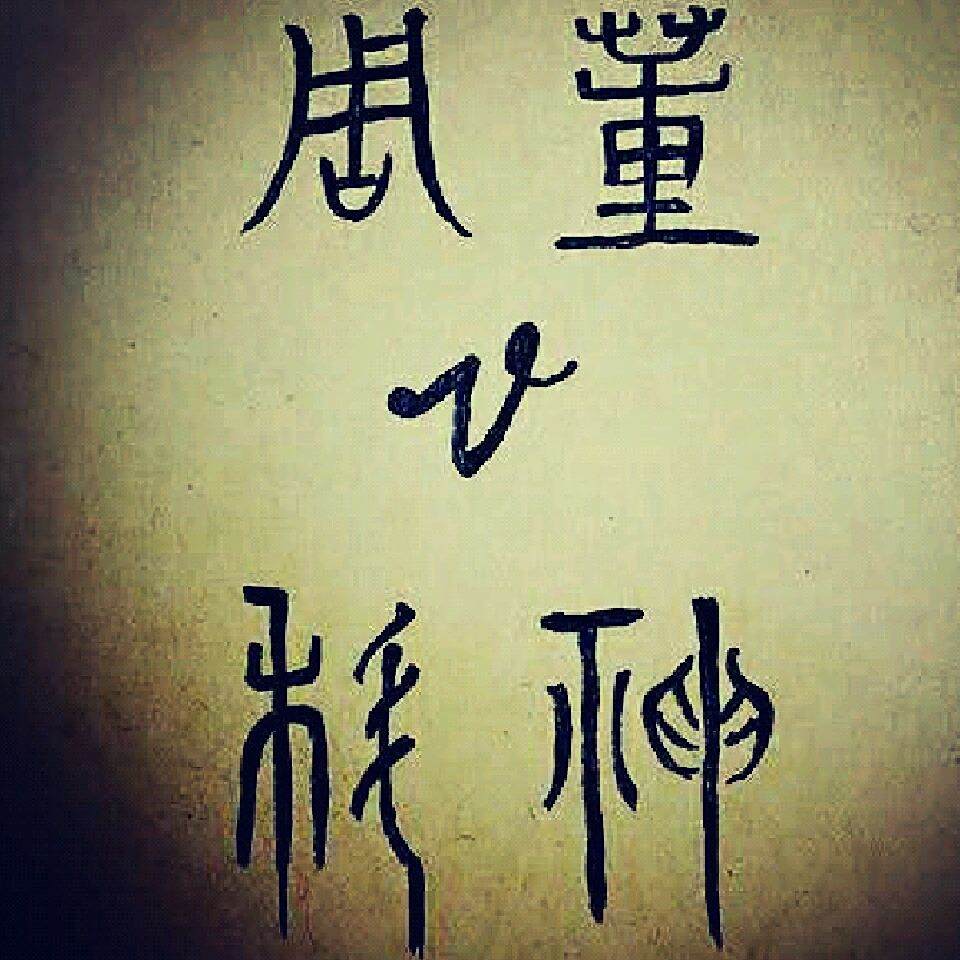 周董
v
移神